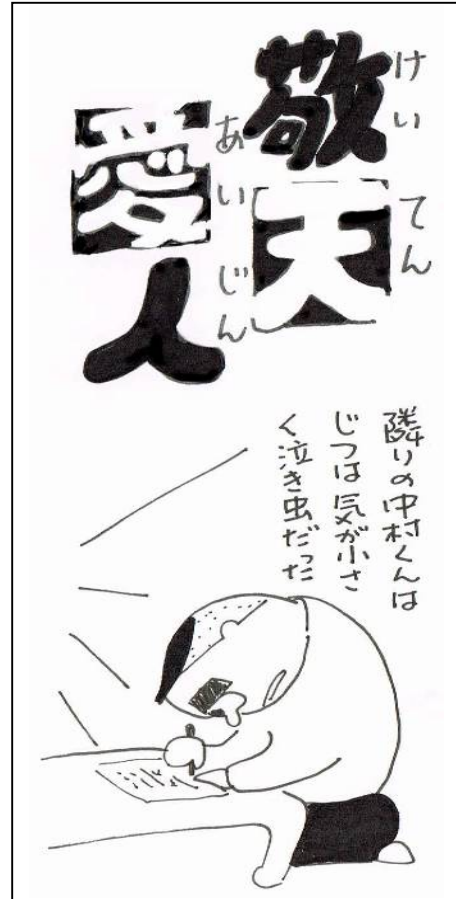 敬天
けいてん
愛人
あいじん
隣りの中村くんは
じつは気が小さ
く泣き虫だった